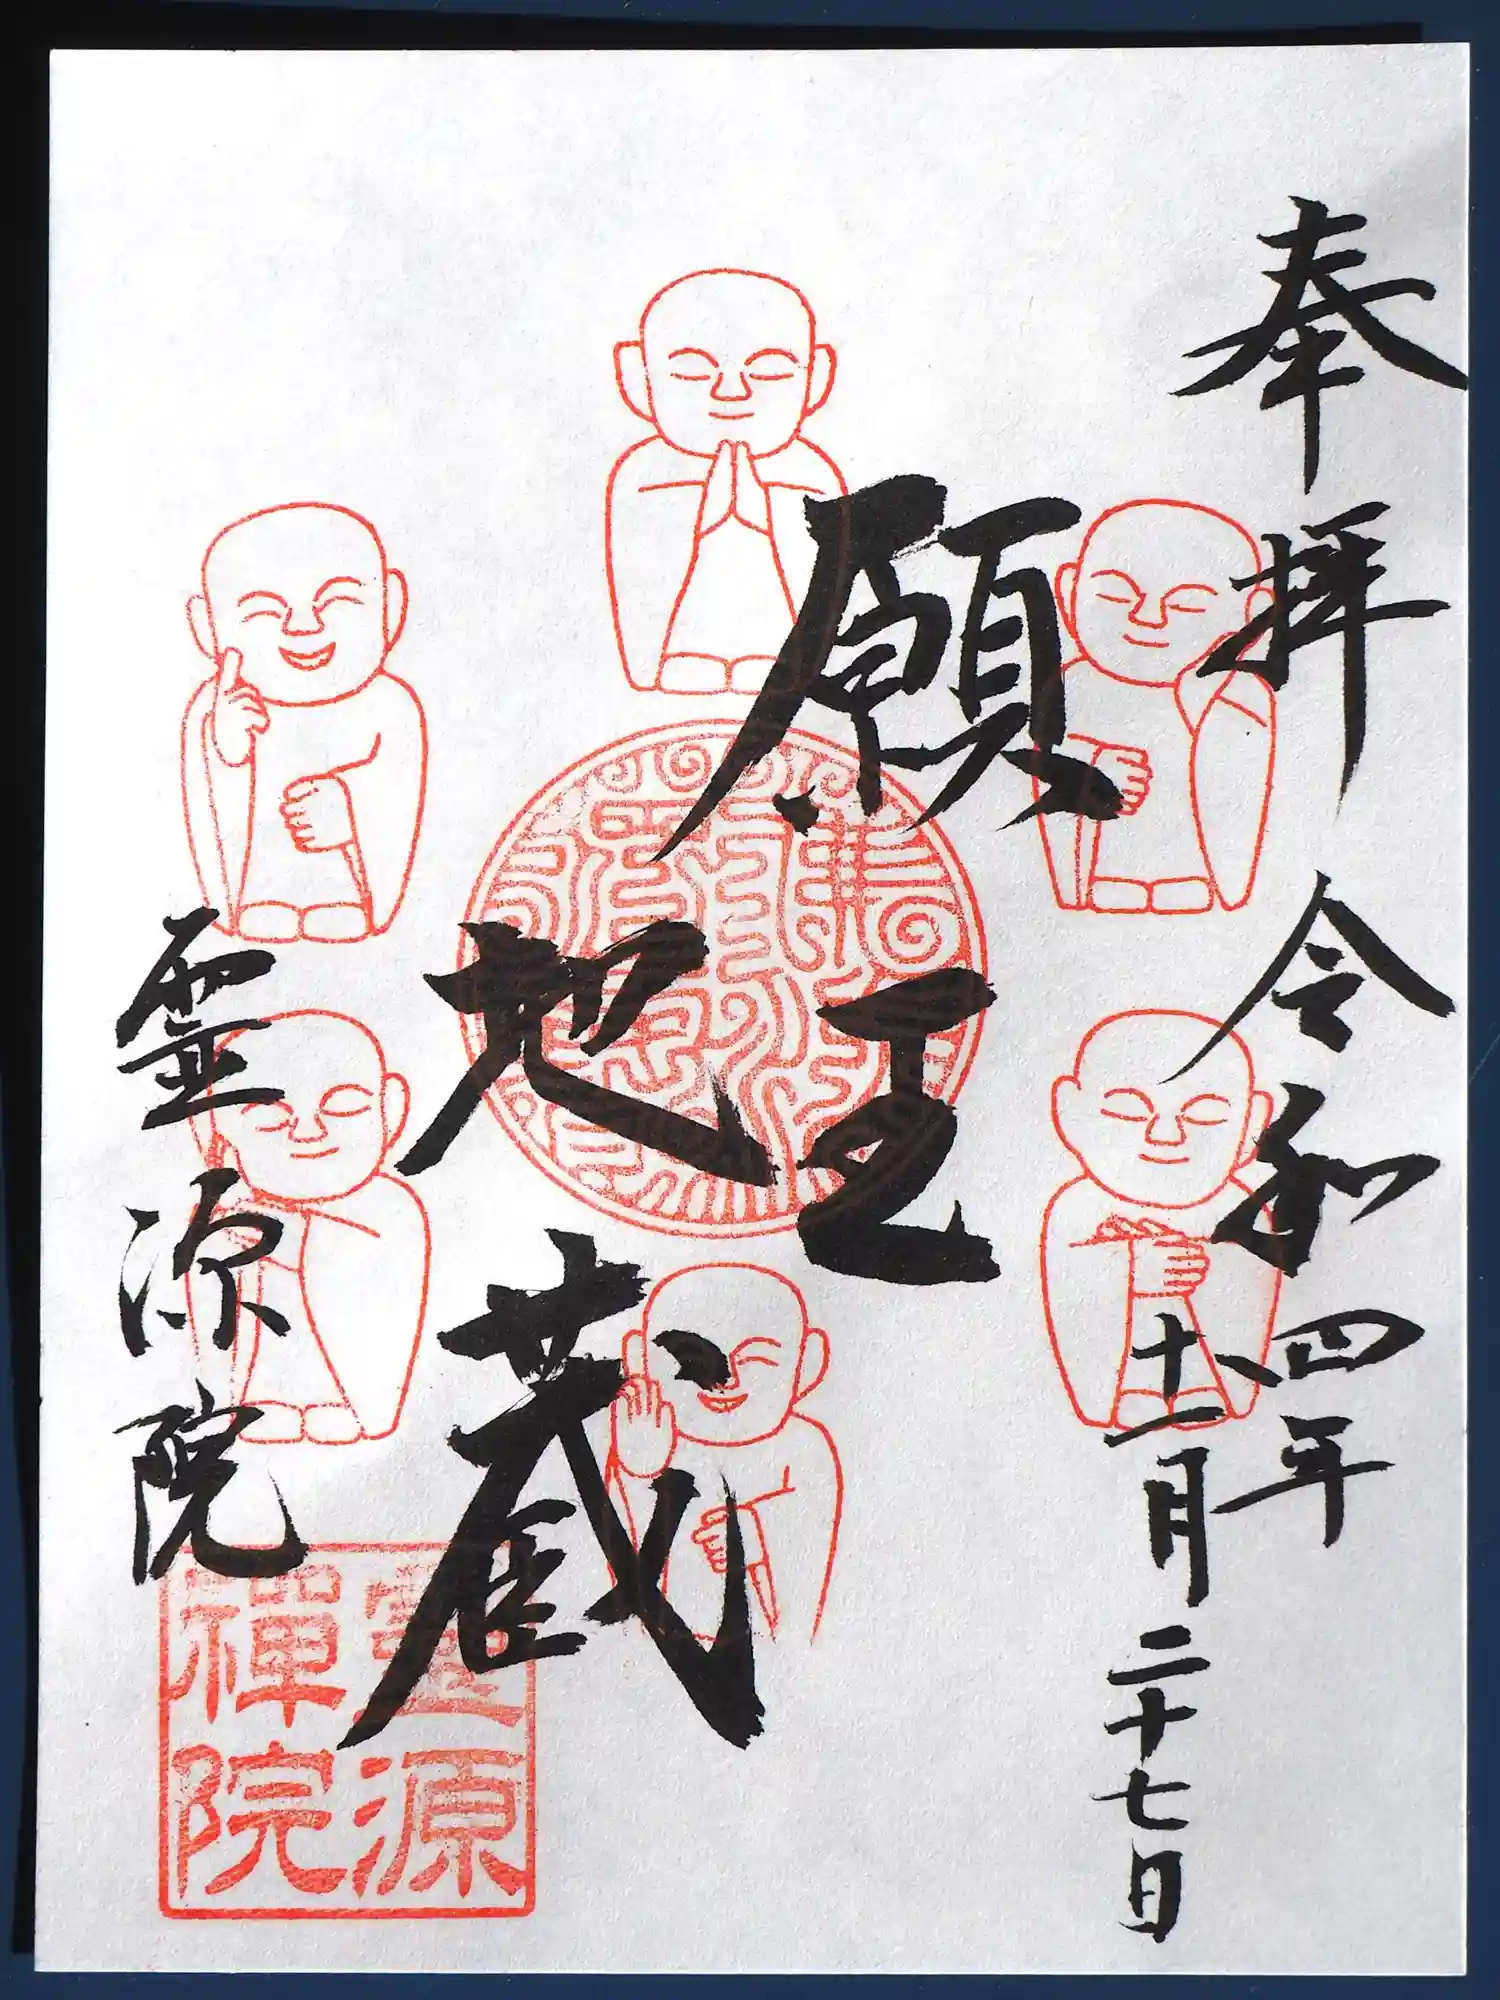 奉拝 令和四年
十一月二十七日
願王
地蔵
霊源院
靈源
禅院